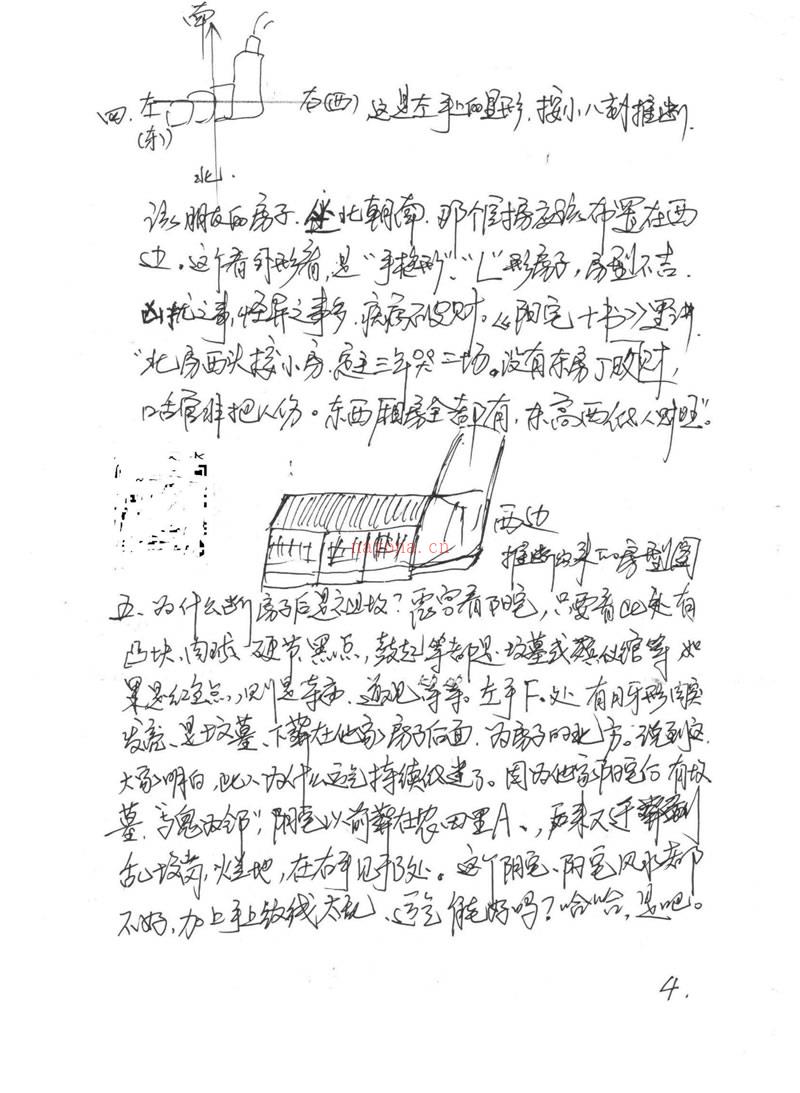 南
四、左 右(西) 这是左手上的显形,按小八刻推断.
(东)
北.
该朋友的房子.坐北朝南.那个厨房应该布置在西
边。这个看外形看,是“手枪形”、“L”形房子,房型不吉.
凶扰之事,怪异之事多.疾病不少财。《阳宅十书》里讲.
“北房西头接小房.宅主三年哭二场。没有东房丁败财,
口舌官非把人伤。东西厢房全都有,东高西低人财旺”。
西边
推断出来的房型图
nayona.cn
五、为什么断房子后是之坟?震宫看阳宅,只要看此处有
凸块、肉球、硬节、黑点,鼓起等都是坟墓或 等如
果是红点,则是 等等。左手F。处有月牙形
发亮、是坟墓、下葬在他家房子后面.为房子的北方。说到这.
大家明白,此人为什么运气持续低迷了。因为他家阳宅后有坟
墓.“与鬼为邻”,阴宅以前葬在农田里A、,后来又迁葬到
乱坟岗,烂地,在右手 B处。这个阴宅、阳宅风水都
不好,加上手上纹线太乱、运气能好吗?哈哈,是吧。
4.